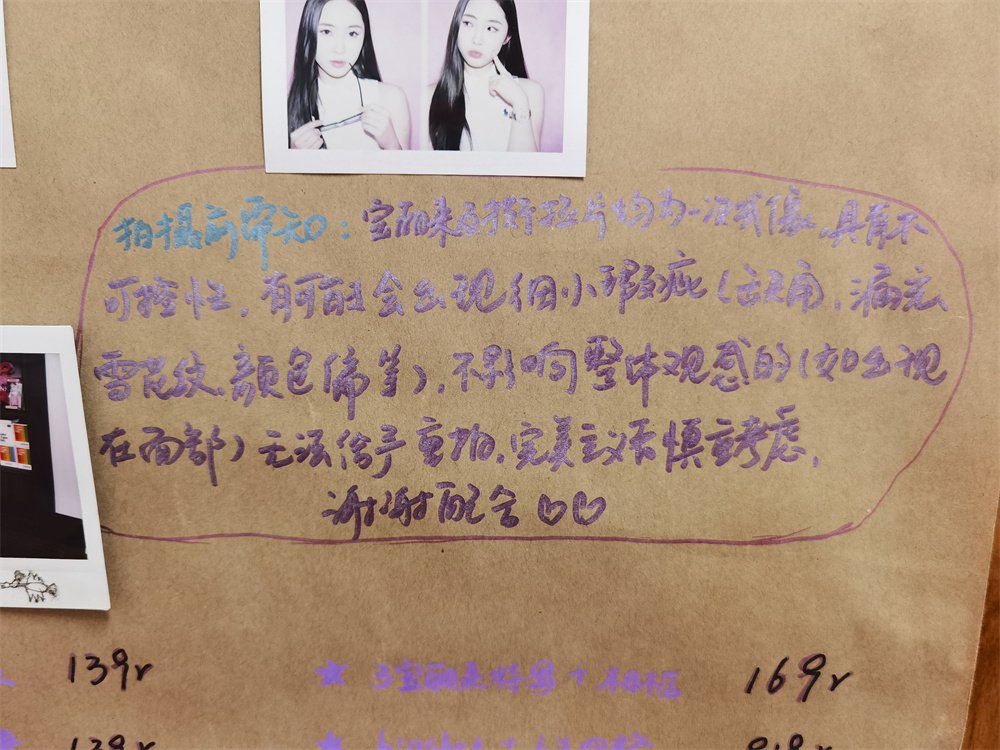 拍摄前需知：宝丽来及撕拉片均为一次成像，具有不
可控性，有可能会出现细小瑕疵（缺角、漏底、
雪花纹、颜色偏等），不影响整体观感的（如出现
在面部）无法给予重拍，完美主义者慎重考虑，
谢谢配合♡♡
139r
★ 3宝丽来
169r
139r